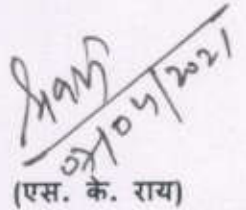 07/04/2021
(एस. के. राय)